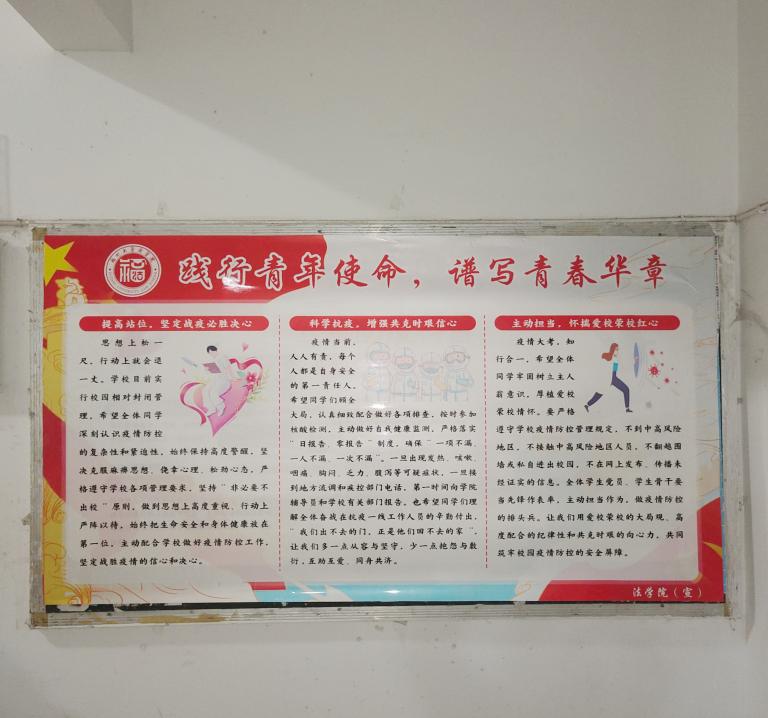 践行青年使命，谱写青春华章
提高站位，坚定战疫必胜决心
思想上松一
尺，行动上就会退
一丈。学校目前实
行校园相对封闭管
理，希望全体同学
深刻认识疫情防控
的复杂性和紧迫性，始终保持高度警醒，坚
决克服麻痹思想、侥幸心理、松劲心态，严
格遵守学校各项管理要求，坚持“非必要不
出校”原则，做到思想上高度重视、行动上
严阵以待，始终把生命安全和身体健康放在
第一位，主动配合学校做好疫情防控工作，
坚定战胜疫情的信心和决心。
科学抗疫，增强共克时艰信心
疫情当前，
人人有责，每个
人都是自身安全
的第一责任人。
希望同学们顾全
大局，认真细致配合做好各项排查，按时参加
核酸检测，主动做好自我健康监测，严格落实
“日报告、零报告”制度，确保“一项不漏、
一人不漏、一次不漏”。一旦出现发热、咳嗽、
咽痛、胸闷、乏力、腹泻等可疑症状，一旦接
到地方流调和疾控部门电话，第一时间向学院
辅导员和学校有关部门报告。也希望同学们理
解全体奋战在抗疫一线工作人员的辛勤付出，
“我们出不去的门，正是他们回不去的家”，
让我们多一点从容与坚守，少一点抱怨与敷
衍，互助互爱、同舟共济。
主动担当，怀揣爱校荣校红心
疫情大考，知
行合一，希望全体
同学牢固树立主人
翁意识，厚植爱校
荣校情怀。要严格
遵守学校疫情防控管理规定，不到中高风险
地区，不接触中高风险地区人员，不翻越围
墙或私自进出校园，不在网上发布、传播未
经证实的信息。全体学生党员、学生骨干要
当先锋作表率，主动担当作为，做疫情防控
的排头兵。让我们用爱校荣校的大局观、高
度配合的纪律性和共克时艰的向心力，共同
筑牢校园疫情防控的安全屏障。
法学院（宣）